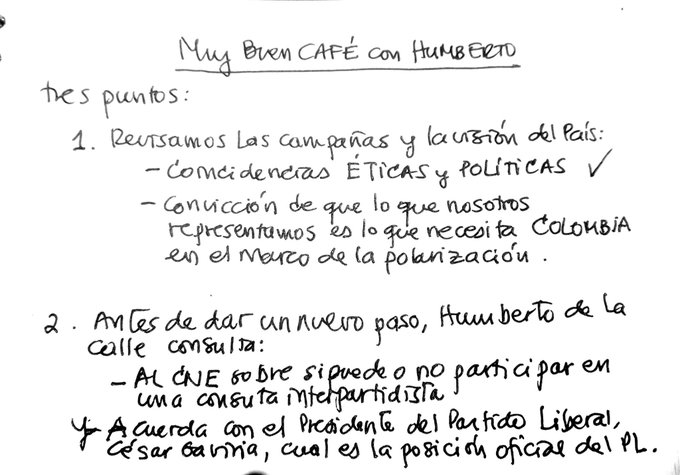 Muy Buen CAFÉ con HUMBERTO
tres puntos:
1. Revisamos las campañas y la visión del País:
- Coincidencias ÉTICAS y POLÍTICAS ✓
- Convicción de que lo que nosotros
representamos es lo que necesita COLOMBIA
en el marco de la polarización.
2. Antes de dar un nuevo paso, Humberto de la
Calle consulta:
- AL CNE sobre si puede o no participar en
una consulta interpartidista
y - Acuerda con el Presidente del Partido Liberal,
César Gaviria, cual es la posición oficial del PL.